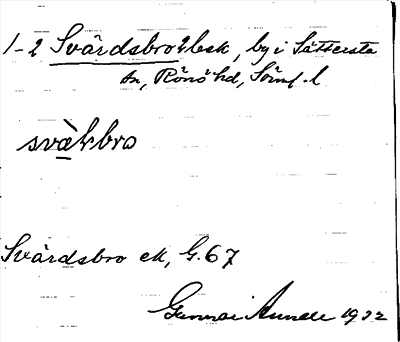 1-2 Svärdsbro, by i Sättersta
sn, Rönö hd, Söml. l
svàkbro
Svärdsbro ek, G. 67
Gunnar 1922